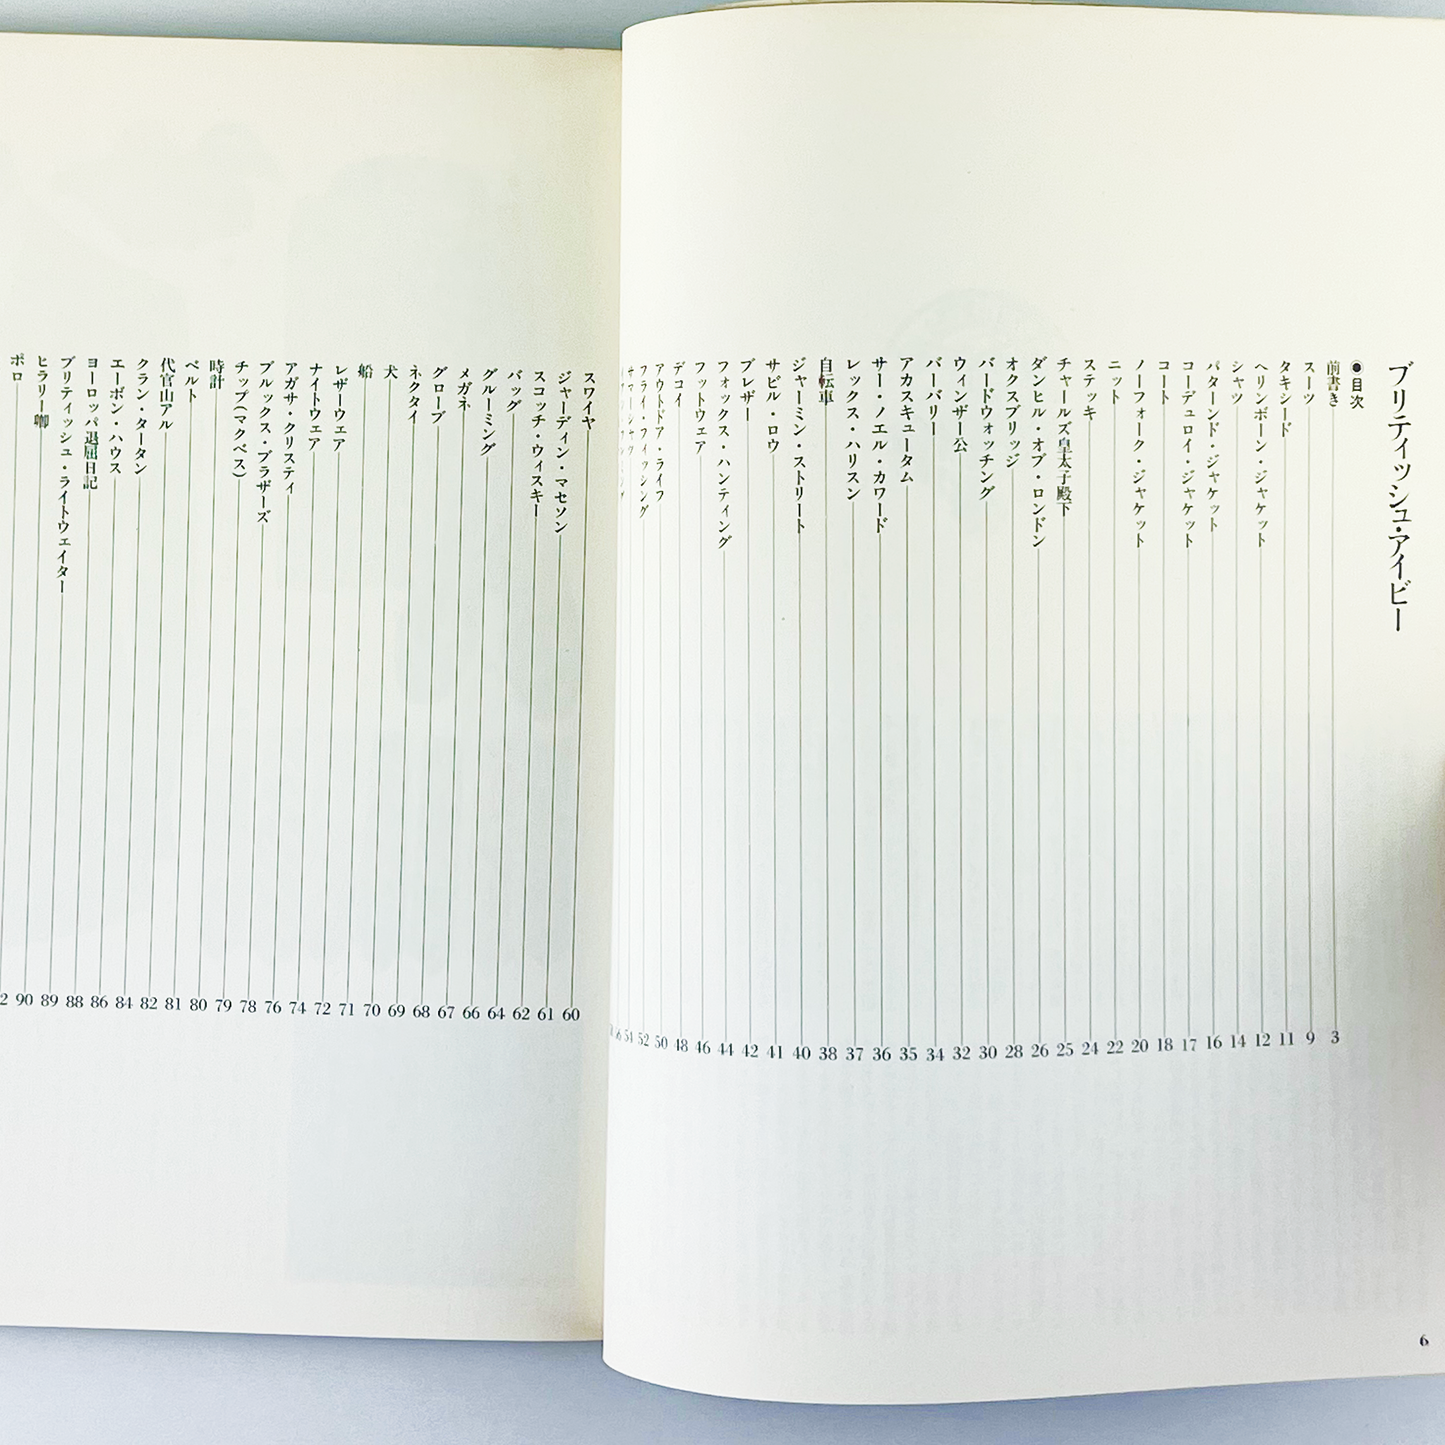 ブリティッシュ・アイビー
●目次
前書き 3
スーツ 9
タキシード 11
ヘリンボーン・ジャケット 12
シャツ 14
パターンド・ジャケット 16
コーデュロイ・ジャケット 17
コート 18
ノーフォーク・ジャケット 20
ニット 22
ステッキ 24
チャールズ皇太子殿下 25
ダンヒル・オブ・ロンドン 26
オクスブリッジ 28
バードウォッチング 30
ウィンザー公 32
バーバリー 34
アカスキュータム 35
サー・ノエル・カワード 36
レックス・ハリスン 37
自転車 38
ジャーミン・ストリート 40
サビル・ロウ 41
ブレザー 42
フォックス・ハンティング 44
フットウェア 46
デコイ 48
アウトドア・ライフ 50
フライ・フィッシング 52
54
スワイヤ 60
ジャーディン・マセソン 61
スコッチ・ウィスキー 62
バッグ 64
グルーミング 66
メガネ 67
グローブ 68
ネクタイ 69
犬 70
船 71
レザーウェア 72
ナイトウェア 74
アガサ・クリスティ 76
ブルックス・ブラザーズ 78
チップ(マクベス) 79
時計 80
ベルト 81
代官山アル 82
クラン・タータン 84
エーボン・ハウス 86
ヨーロッパ退屈日記 88
ブリティッシュ・ライトウェイター 89
ヒラリー卿 90
ポロ
6